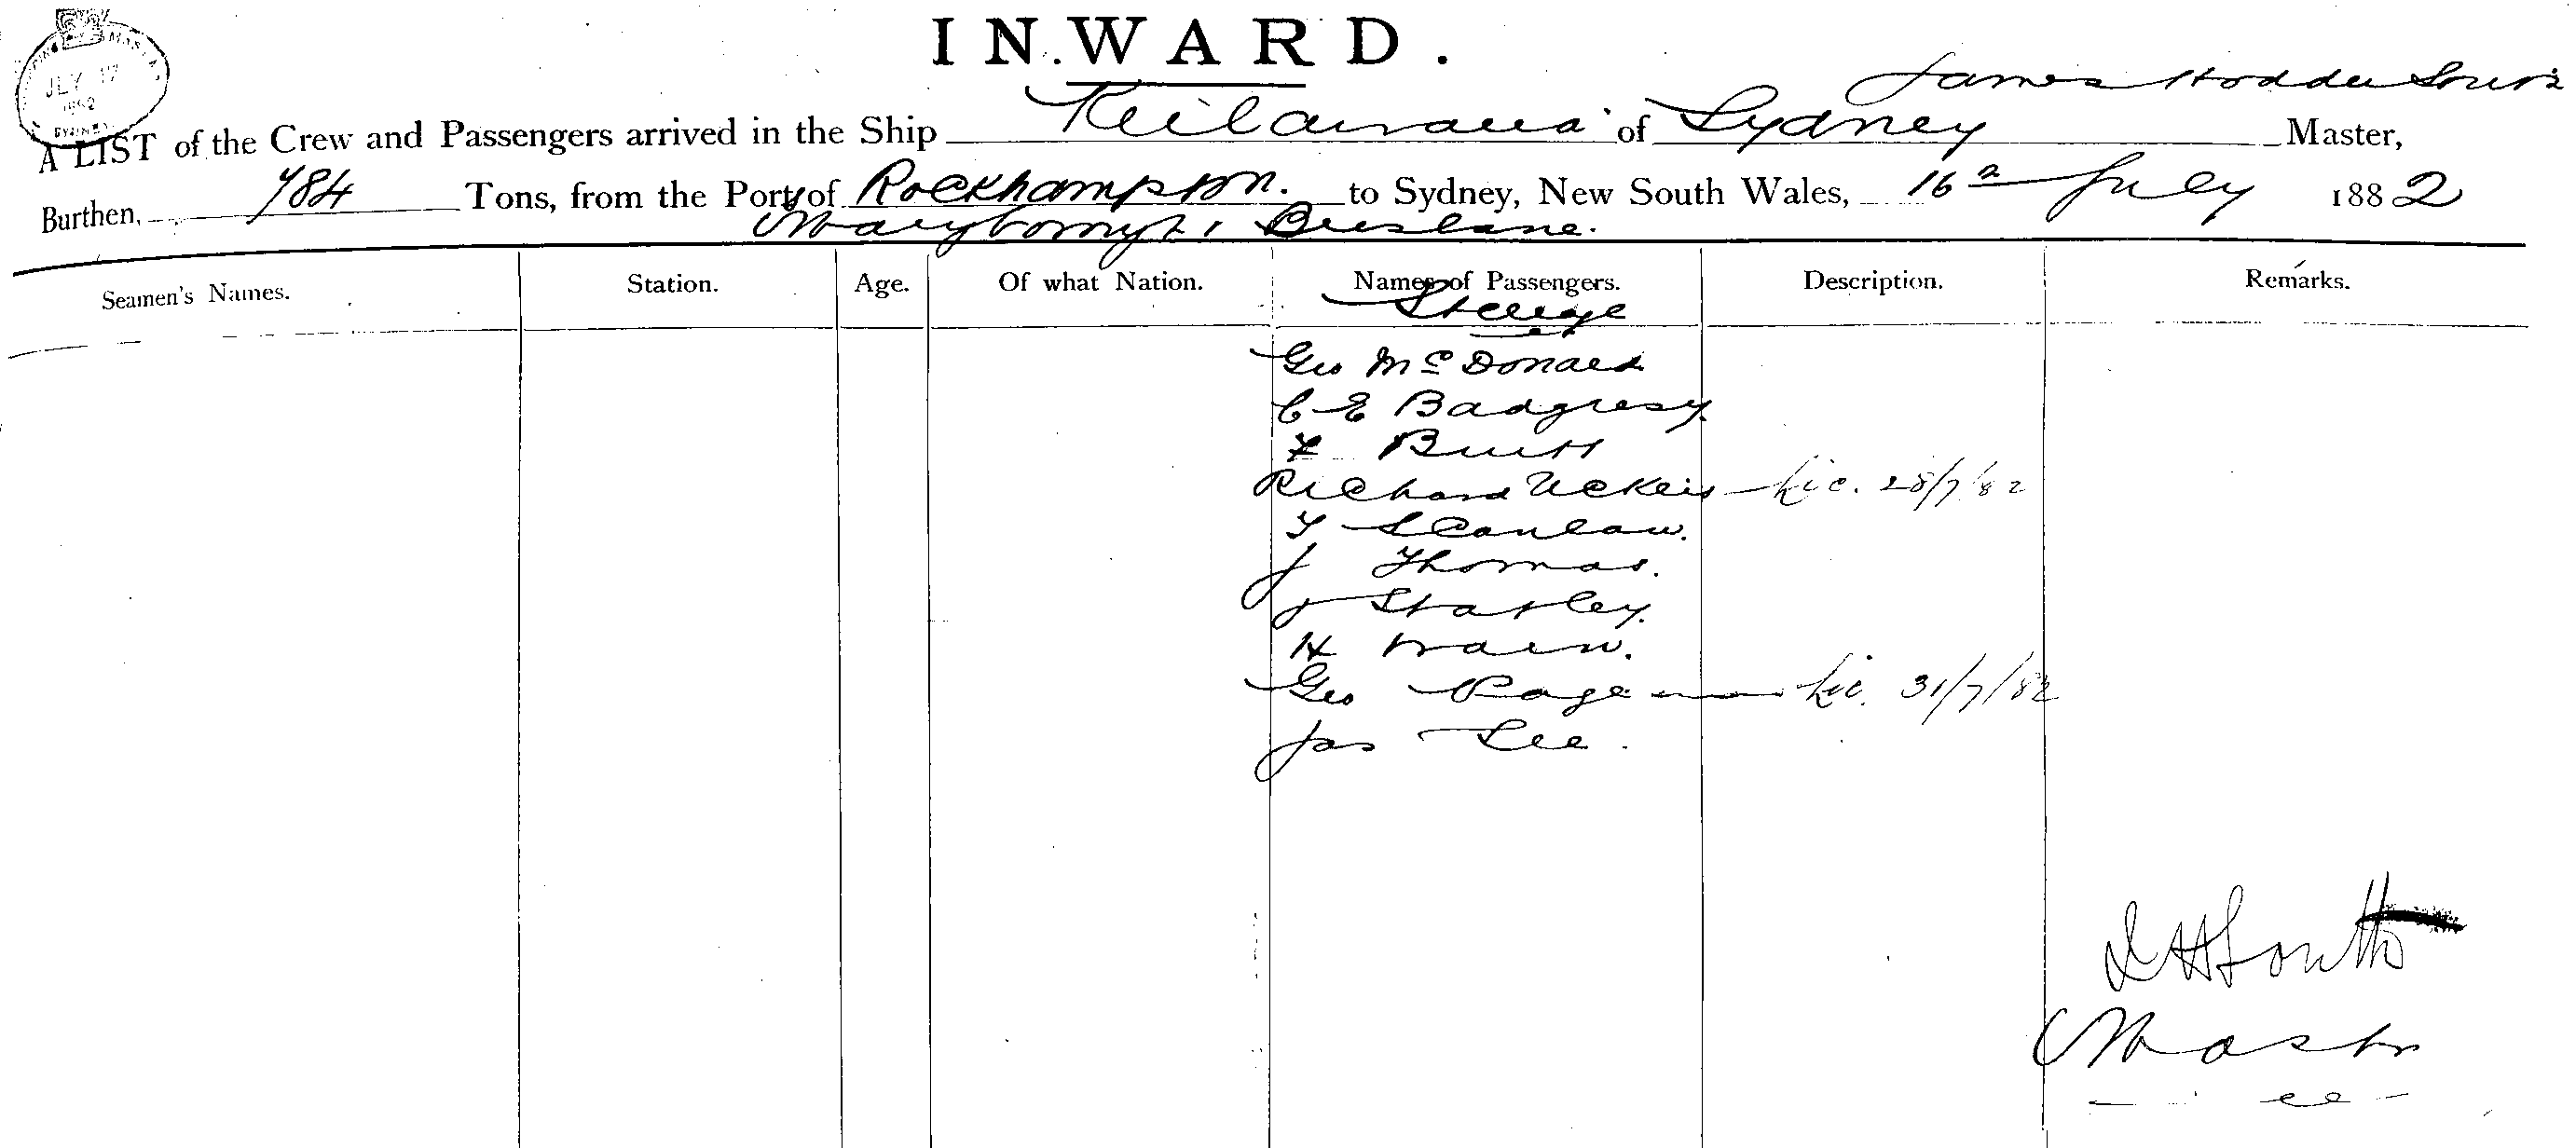 INWARD.
JLY 17
1882
SYDNEY
James Hodder South
A LIST of the Crew and Passengers arrived in the Ship Keilawarra of Sydney Master,
Burthen, 784 Tons, from the Port of Rockhampton. to Sydney, New South Wales, 16th July 1882
Maryborough, Brisbane.
Seamen's Names. Station. Age. Of what Nation. Names of Passengers. Description. Remarks.
Steerage
Geo McDonald
C E Badgresy
Burtt
Richard Lic. 28/7/82
T Scanlaw.
J Thomas.
J Statley.
H Wain.
Geo Page Lic. 31/7/82
Jas Lee.
J H South
Master